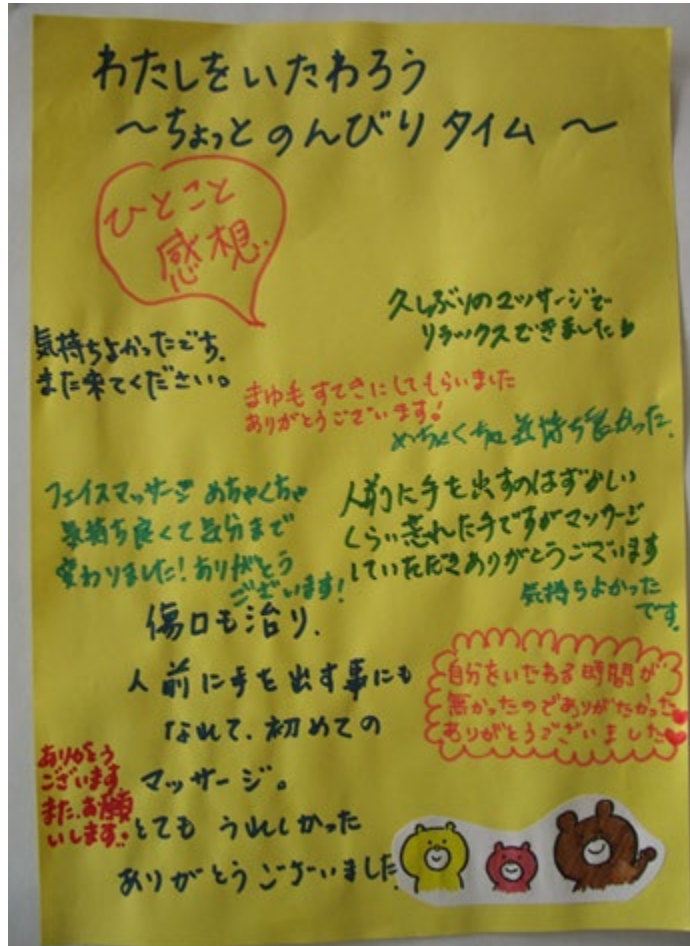 わたしをいたわろう
～ちょっとのんびりタイム～
ひとこと
感想
久しぶりのマッサージで
リラックスできました
気持ちよかったです。
また来てください。
まゆ毛すてきにしてもらいました
ありがとうございます!
めちゃくちゃ気持ち良かった。
フェイスマッサージめちゃくちゃ
気持ち良くて気分まで
変わりました!ありがとう
ございます!
人前に手を出すのはずかしい
くらい荒れた手ですがマッサージ
していただきありがとうございます
気持ちよかった
です。
傷口も治り、
人前に手を出す事にも
なれて、初めての
マッサージ。
とてもうれしかった
ありがとうございました
自分をいたわる時間が
無かったのでありがたかった
ありがとうございました
ありがとう
ございます
また、お願
いします。